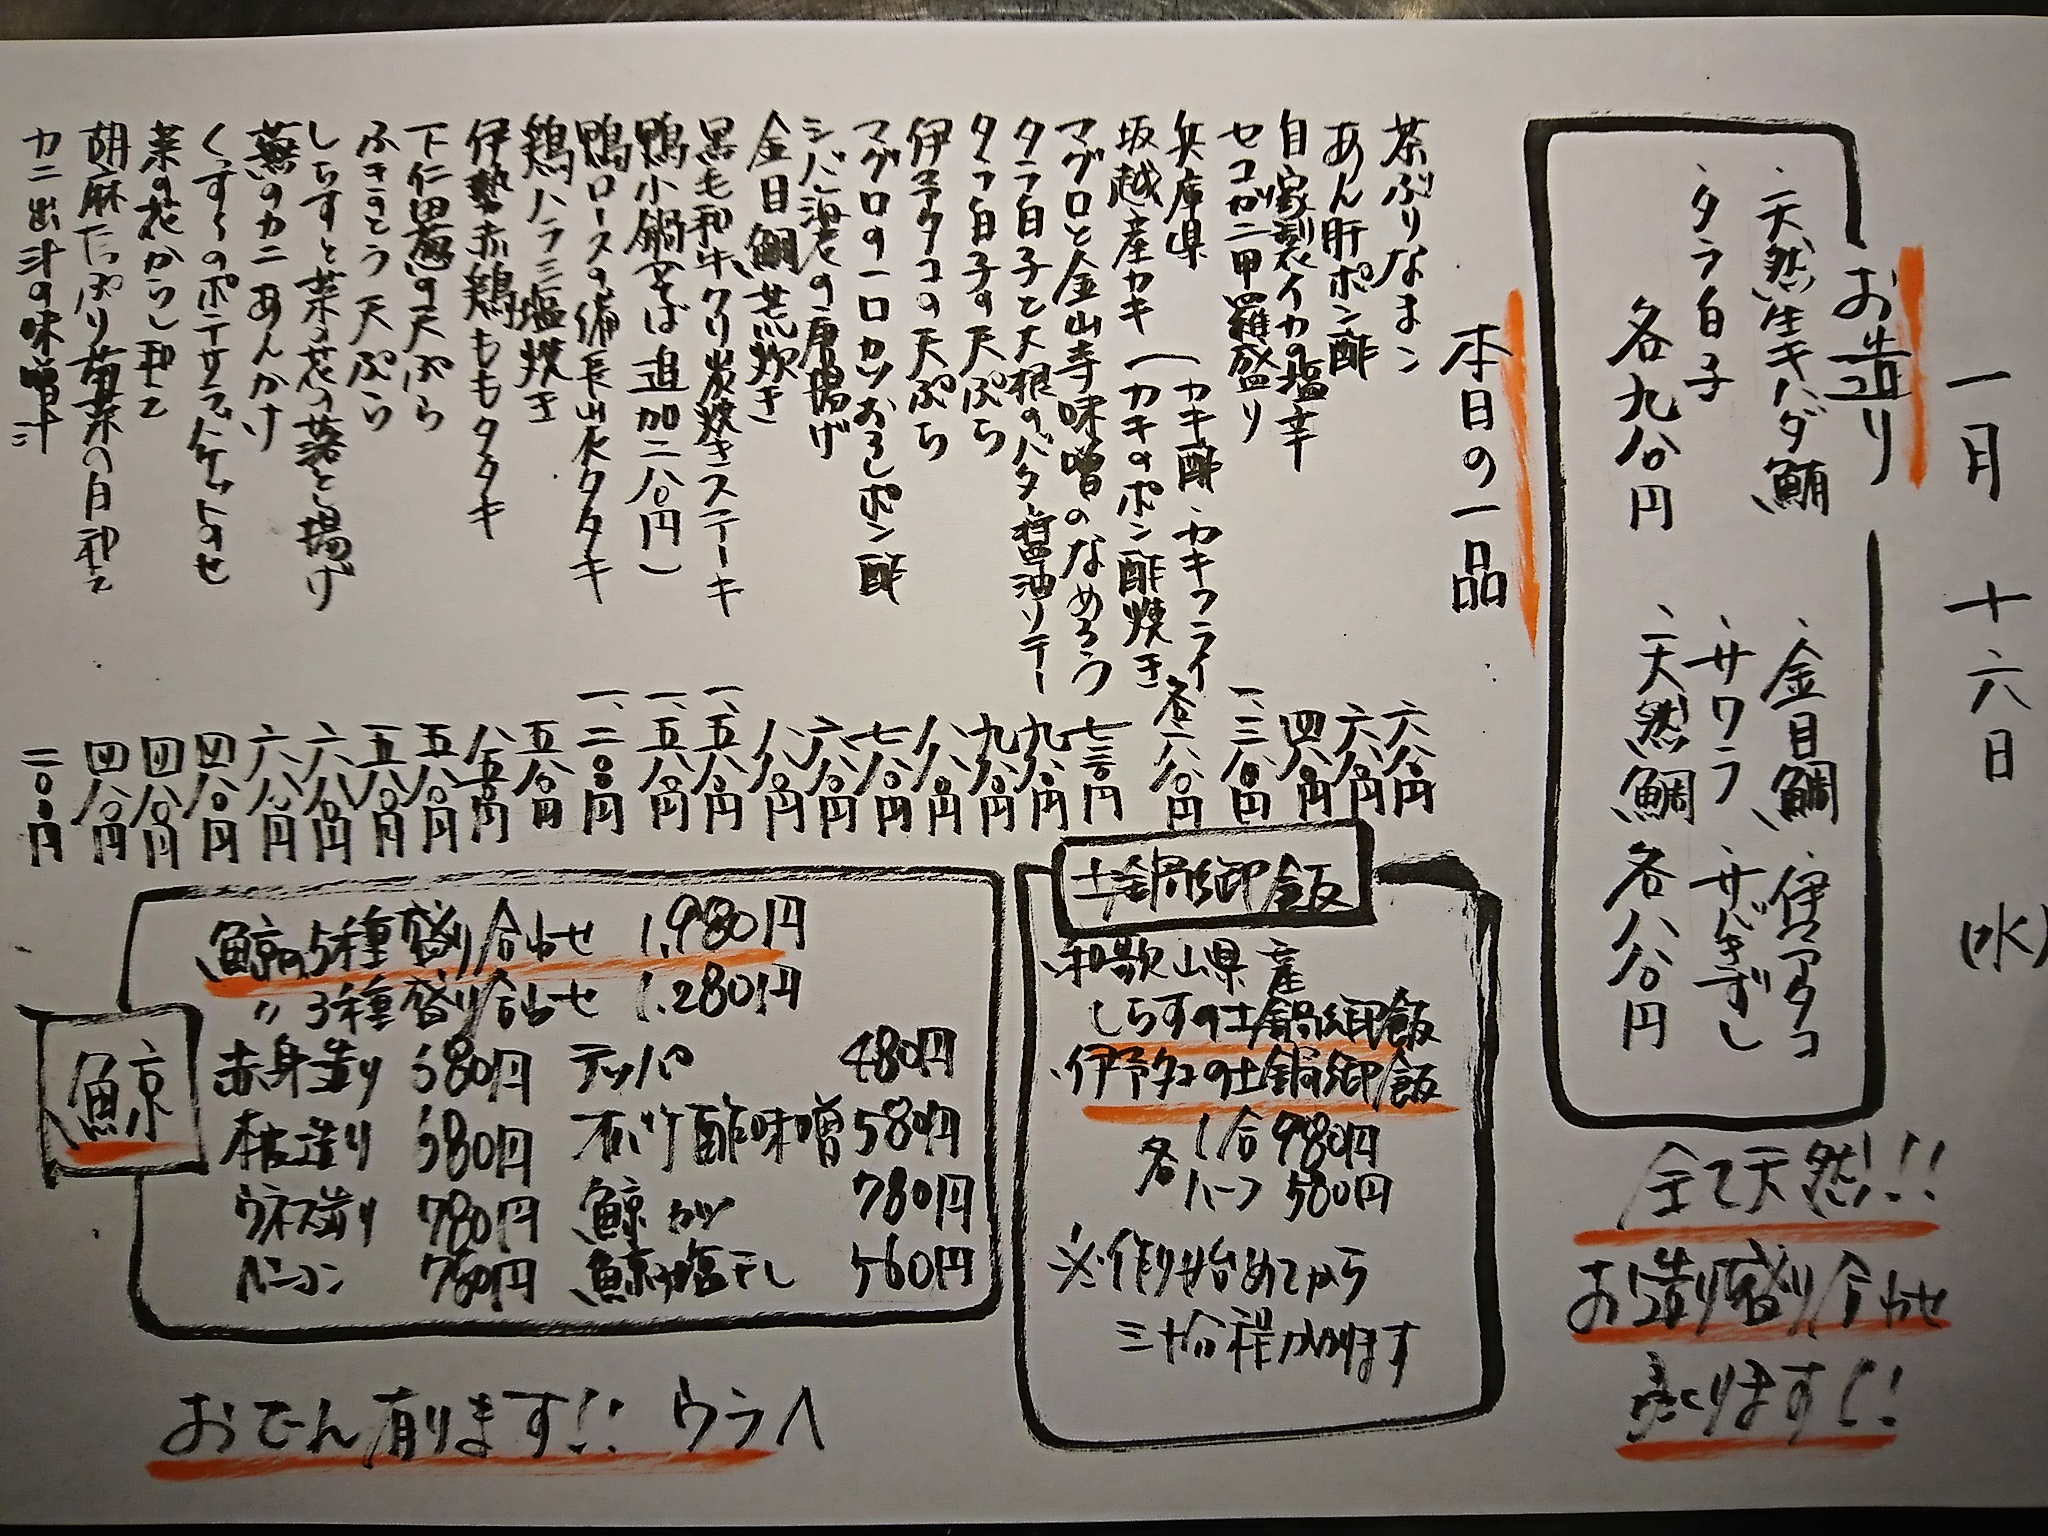 一月 十六日 (水)
お造り
・天然生キハダ鮪
・タラ白子
各九八〇円
・金目鯛 ・伊予タコ
・サワラ ・サバきずし
・天然鯛 各八八〇円
全て天然!!
お造り盛り合わせ
売ります!!
本日の一品
茶ぶりなまこ 六八〇円
あん肝ポン酢 六八〇円
自家製イカの塩辛 四八〇円
セコガニ甲羅盛り 一、三八〇円
兵庫県 (カキ酢・カキフライ
坂越産カキ (カキのポン酢焼き 各六八〇円
マグロと金山寺味噌のなめろう 七三〇円
タラ白子と大根のバター醤油ソテー 九八〇円
タラ白子の天ぷら 九八〇円
伊予タコの天ぷら 八八〇円
マグロの一口カツおろしポン酢 七八〇円
シバ海老の唐揚げ 六八〇円
金目鯛荒炊き 八八〇円
黒毛和牛クリ炭焼きステーキ 一、五八〇円
鴨小鍋(そば追加二八〇円) 一、五八〇円
鴨ロースの備長山水タタキ 一、二〇〇円
鶏ハラミ塩焼き 五八〇円
伊勢赤鶏ももタタキ 八五〇円
下仁田葱の天ぷら 五八〇円
ふきのとう天ぷら 五八〇円
しらすと菜の花の落とし揚げ 六八〇円
蕪のカニあんかけ 六八〇円
くずしのポテサラバケットのせ 四八〇円
菜の花からし和え 四八〇円
胡麻たっぷり菊菜の白和え 四八〇円
カニ出汁の味噌汁 二〇〇円
土鍋御飯
・和歌山県産
しらすの土鍋御飯
・伊予タコの土鍋御飯
各 1合 980円
ハーフ 580円
※作り始めてから
三十分程かかります
鯨
鯨の5種盛り合わせ 1,980円
〃 3種盛り合わせ 1,280円
赤身造り 580円 テッパ 480円
本皮造り 580円 オバケ酢味噌 580円
ウネス造り 780円 鯨カツ 780円
ベーコン 780円 鯨の塩干し 560円
おでん有ります!! ウラへ